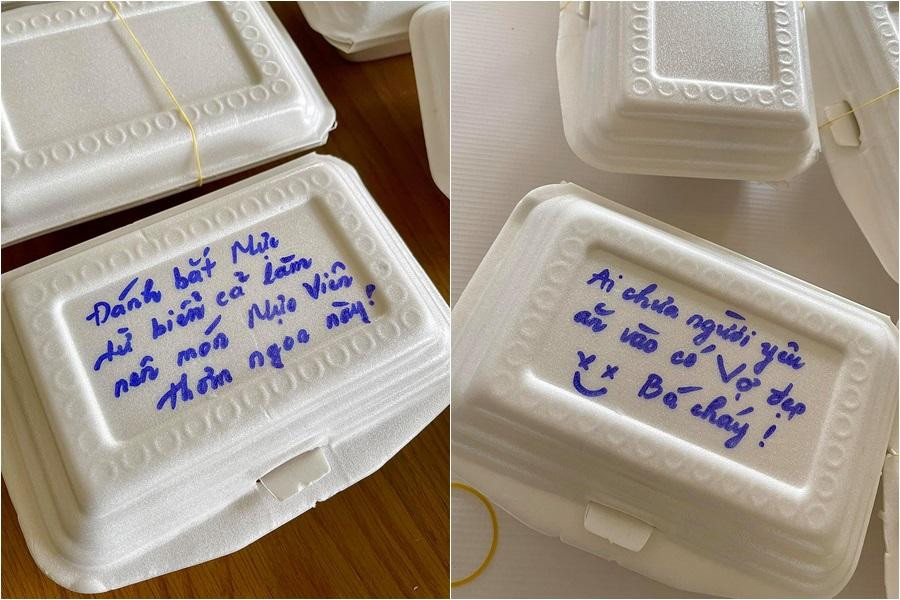 Đánh bắt Mực
từ biển cả làm
nên món Mực Viên
thơm ngon này!
Ai chưa người yêu
ăn vào có Vợ đẹp
Bá cháy!